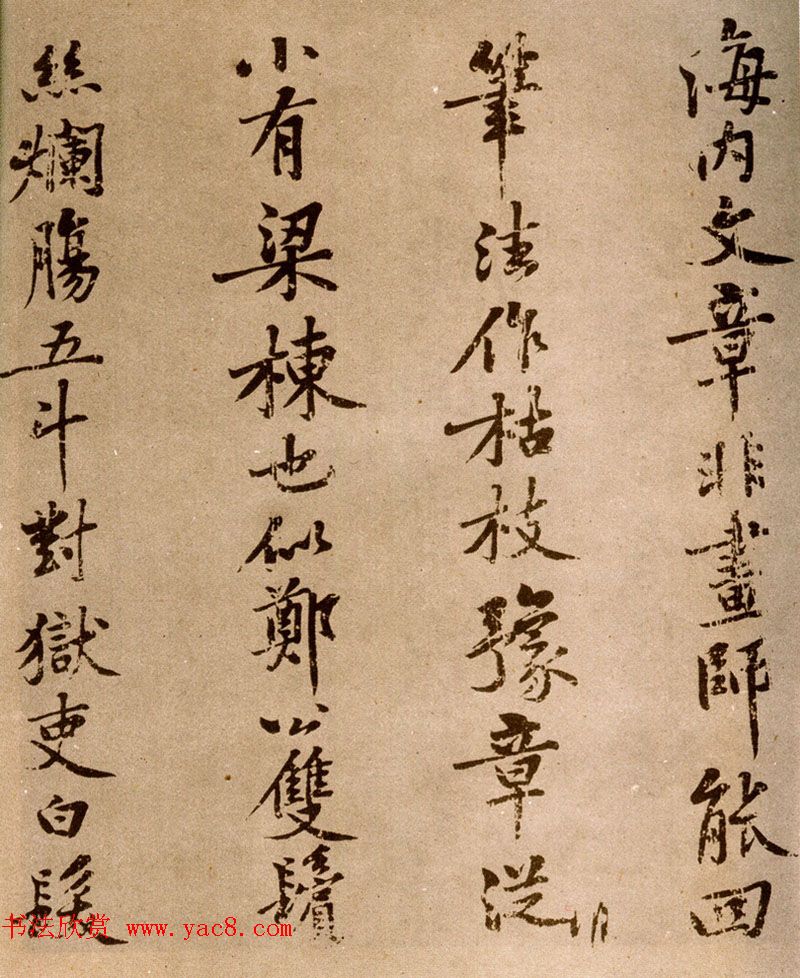 海内文章非畫師能回
筆法作枯枝豫章從
小有梁棟也似鄭公雙鬢
絲爛腸五斗對獄吏白髮
书法欣赏 www.yac8.com